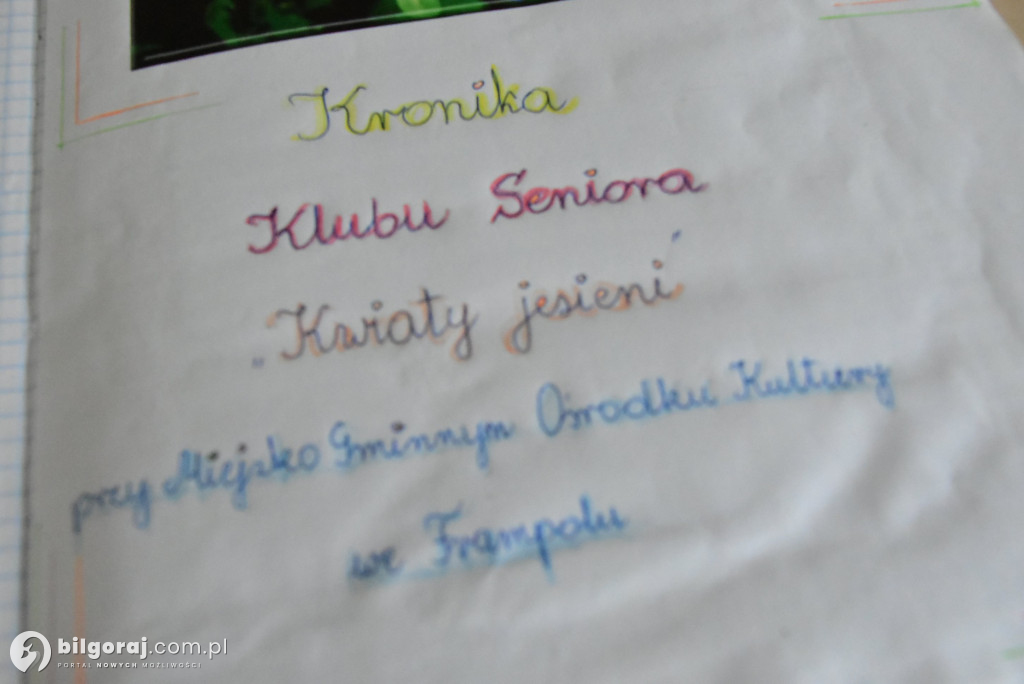 Kronika
Klubu Seniora
„Kwiaty jesieni"
przy Miejsko Gminnym Ośrodku Kultury
we Frampolu
bilgoraj.com.pl
PORTAL NOWYCH MOŻLIWOŚCI